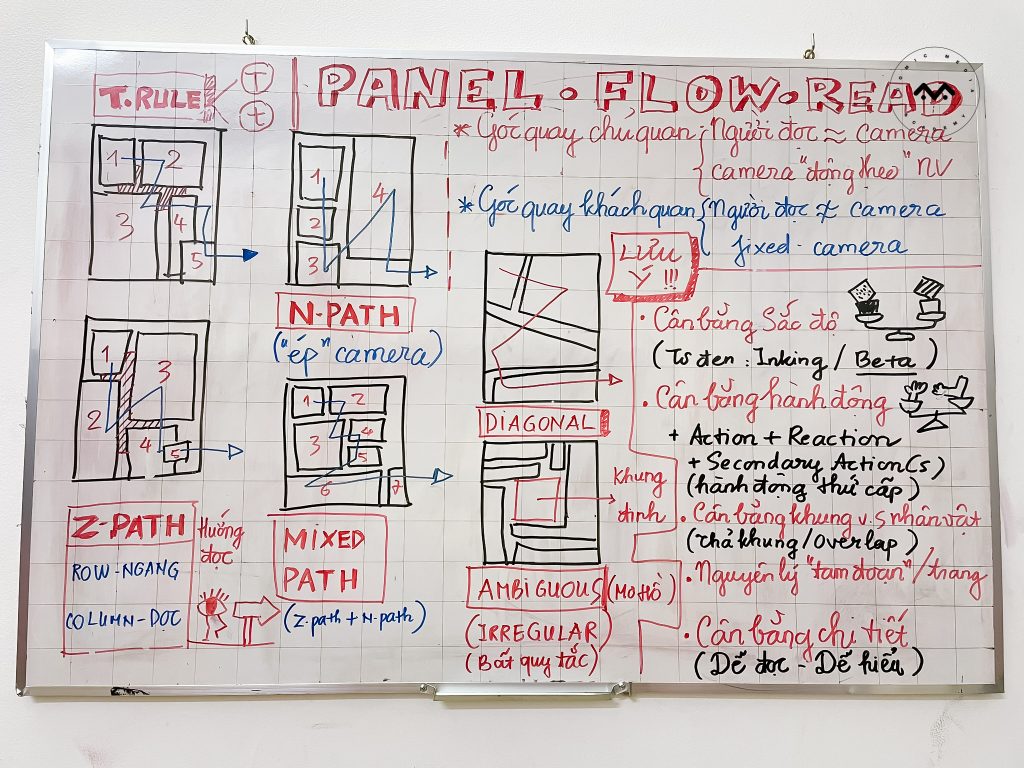 T.RULE
T
t
PANEL·FLOW·READ
* Góc quay chủ quan { Người đọc ≈ camera
camera "động theo" NV
* Góc quay khách quan { Người đọc ≠ camera
fixed-camera
1 2
3
4
5
1
2
3
4
N-PATH
("ép" camera)
1
2
3
4
5
1 2
3
4
5
6
7
Z-PATH
ROW-NGANG
COLUMN-DỌC
Hướng
đọc
MIXED
PATH
(Z-path + N-path)
DIAGONAL
Khung
định
AMBIGUOUS (MƠ HỒ)
(IRREGULAR)
(Bất quy tắc)
LƯU
Ý !!!
• Cân bằng Sắc độ
(Ts đen : Inking / Beta)
• Cân bằng hành động
+ Action + Reaction
+ Secondary Action(s)
(hành động thứ cấp)
• Cân bằng khung v.s nhân vật
(Thả khung/Overlap)
• Nguyên lý "tam đoạn"/trang
• Cân bằng chi tiết
(Dễ đọc - Dễ hiểu)